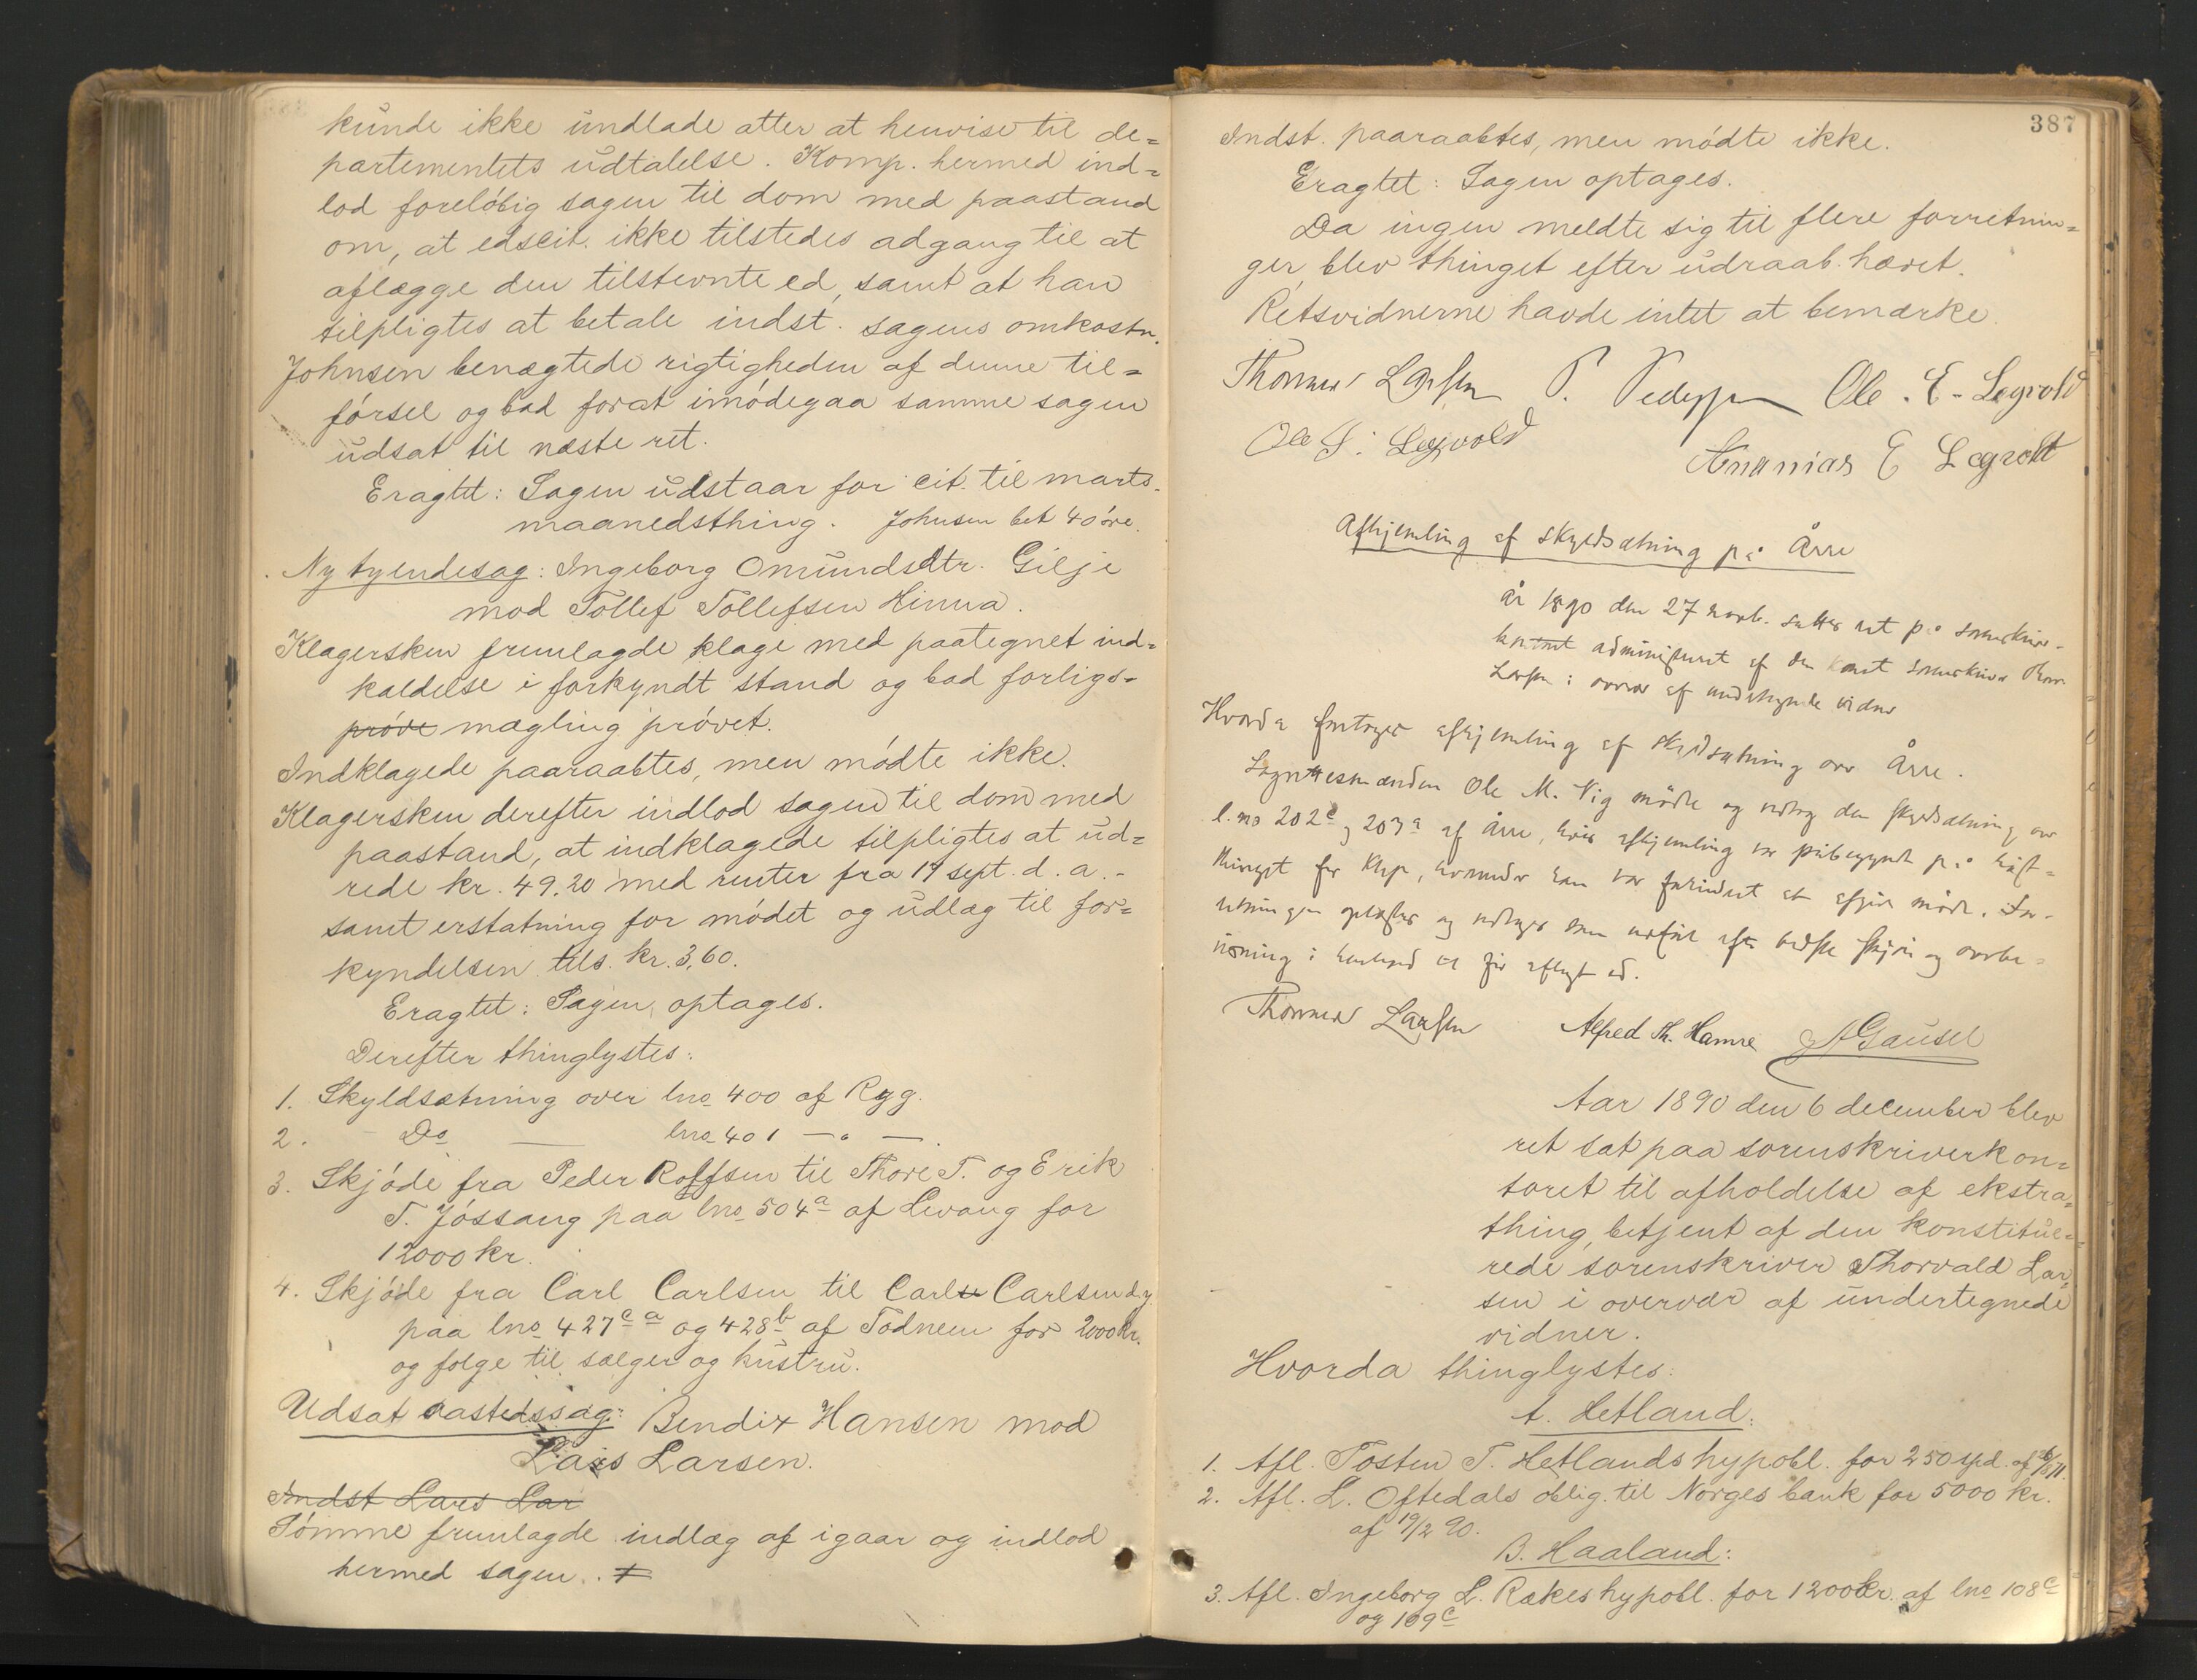 kunde ikke undlade atter at henvise til de=
partementets udtalelse. Komp. hermed ind=
lod foreløbig sagen til dom med paastand
om, at edscit. ikke tilstedes adgang til at
aflægge den tilstevnte ed, samt at han
tilpligtes at betale indst. sagens omkostn.
Johnsen benægtede rigtigheden af denne til=
førsel og bad forat imødegaa samme sagen
udsat til næste ret.
Eragtet: Sagen udstaar for cit. til marts-
maanedsthing. Johnsen bet 40 øre.
Ny tyendesag: Ingeborg Omundsdtr. Gilje
mod Tollef Tollefsen Hinna.
Klagersken fremlagde klage med paategnet ind=
kaldelse i forkyndt stand og bad forligs=
prøve mægling prøvet.
Indklagede paaraabtes, men mødte ikke.
Klagersken derefter indlod sagen til dom med
paastand, at indklagede tilpligtes at ud=
rede kr. 49.20 med renter fra 19 sept. d. a. -
samt erstatning for mødet og udlæg til for=
kyndelsen tils. kr. 3,60.
Eragtet: Sagen optages.
Derefter thinglystes:
1. Skyldsætning over lno 400 af Rygg.
2. - Do — lno 401 — " —.
3. Skjøde fra Peder Roffsen til Thore T. og Erik
T. Jøssang paa lno 504a af Levang for
12000 kr.
4. Skjøde fra Carl Carlsen til Carlse Carlsen d.y.
paa lno 427c a og 428b af Todnem for 2000 kr.
og følge til sælger og hustru.
Udsat aastedssag: Bendix Hansen mod
Lars Larsen.
Indst Lars Lar
Tømme fremlagde indlæg af igaar og indlod
hermed sagen.
387
Indst. paaraabtes, men mødte ikke.
Eragtet: Sagen optages.
Da ingen meldte sig til flere forretnin=
ger, blev thinget efter udraab hævet.
Retsvidnerne havde intet at bemærke.
Larsen P. Pedersen Ole. E. Legvold
Ole S. Legvold
Ananias E Legvold
Afhjemling af skyldsætning på Årre
år 1890 den 27 novb. sattes ret på sorenskriver-
kontoret administreret af den konst sorenskriver
Larsen i overvær af undertegnede vidner
Hvorda foretoges afhjemling af skyldsætning over Årre.
Lagrettesmanden Ole M. Vig mødte og vedtog den skyldsætning over
l. no 202c og 203a af Årre, hvis afhjemling var påbegyndt på høst=
thinget for Klep, hvorunder han var forhindret at afgive møde. For-
retningen oplæstes og vedtoges som udført efter bedste skjøn og overbe=
visning i henhold til før aflagt ed.
Larsen Alfred Th. Hamre A Gausel
Aar 1890 den 6 december blev
ret sat paa sorenskriverkon=
toret til afholdelse af ekstra=
thing, betjent af den konstitue=
rede sorenskriver Thorvald Lar=
sen i overvær af undertegnede
vidner.
Hvorda thinglystes:
A. Hetland:
1. Afl. Tosten T. Hetlands hypobl. for 250 spd. af
2. Afl. L. Oftedals oblig. til Norges bank for 5000 kr.
af 19/2 90.
B. Haaland:
3. Afl. Ingeborg L. Rækes hypobl. for 1200 kr. af lno 108c
og 109c